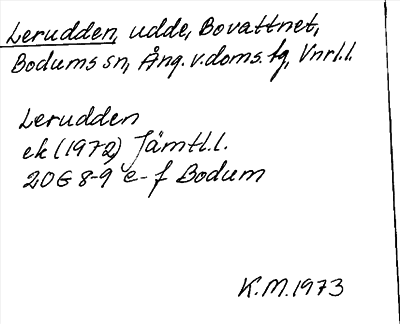 Lerudden, udde, Bovattnet,
Bodums sn, Ång. v. doms. fg, Vnrl.l.
Lerudden
ek (1972) Jämtl.l.
20G 8-9 e-f Bodum
K.M. 1973